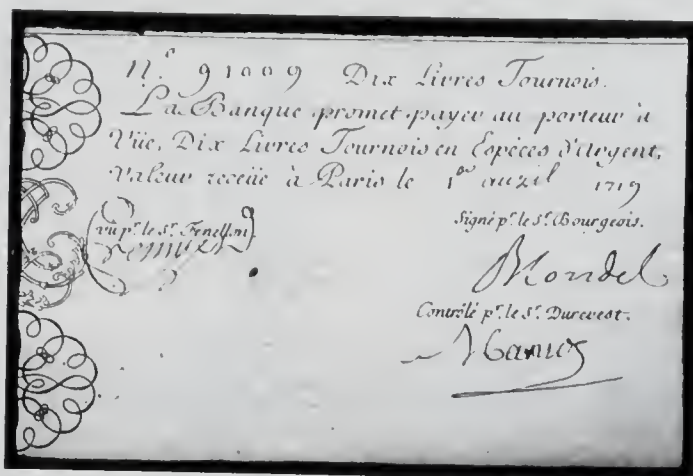 N.º 91009 Dix Livres Tournois.
La Banque promet payer au porteur à
Vüe, Dix Livres Tournois en Espéces d'Argent,
valeur receüe à Paris le 1er avril 1719
vu p.r le S.r Fenellon
Signé p.r le S.r Bourgeois.
Contrôlé p.r le S.r Durevest.